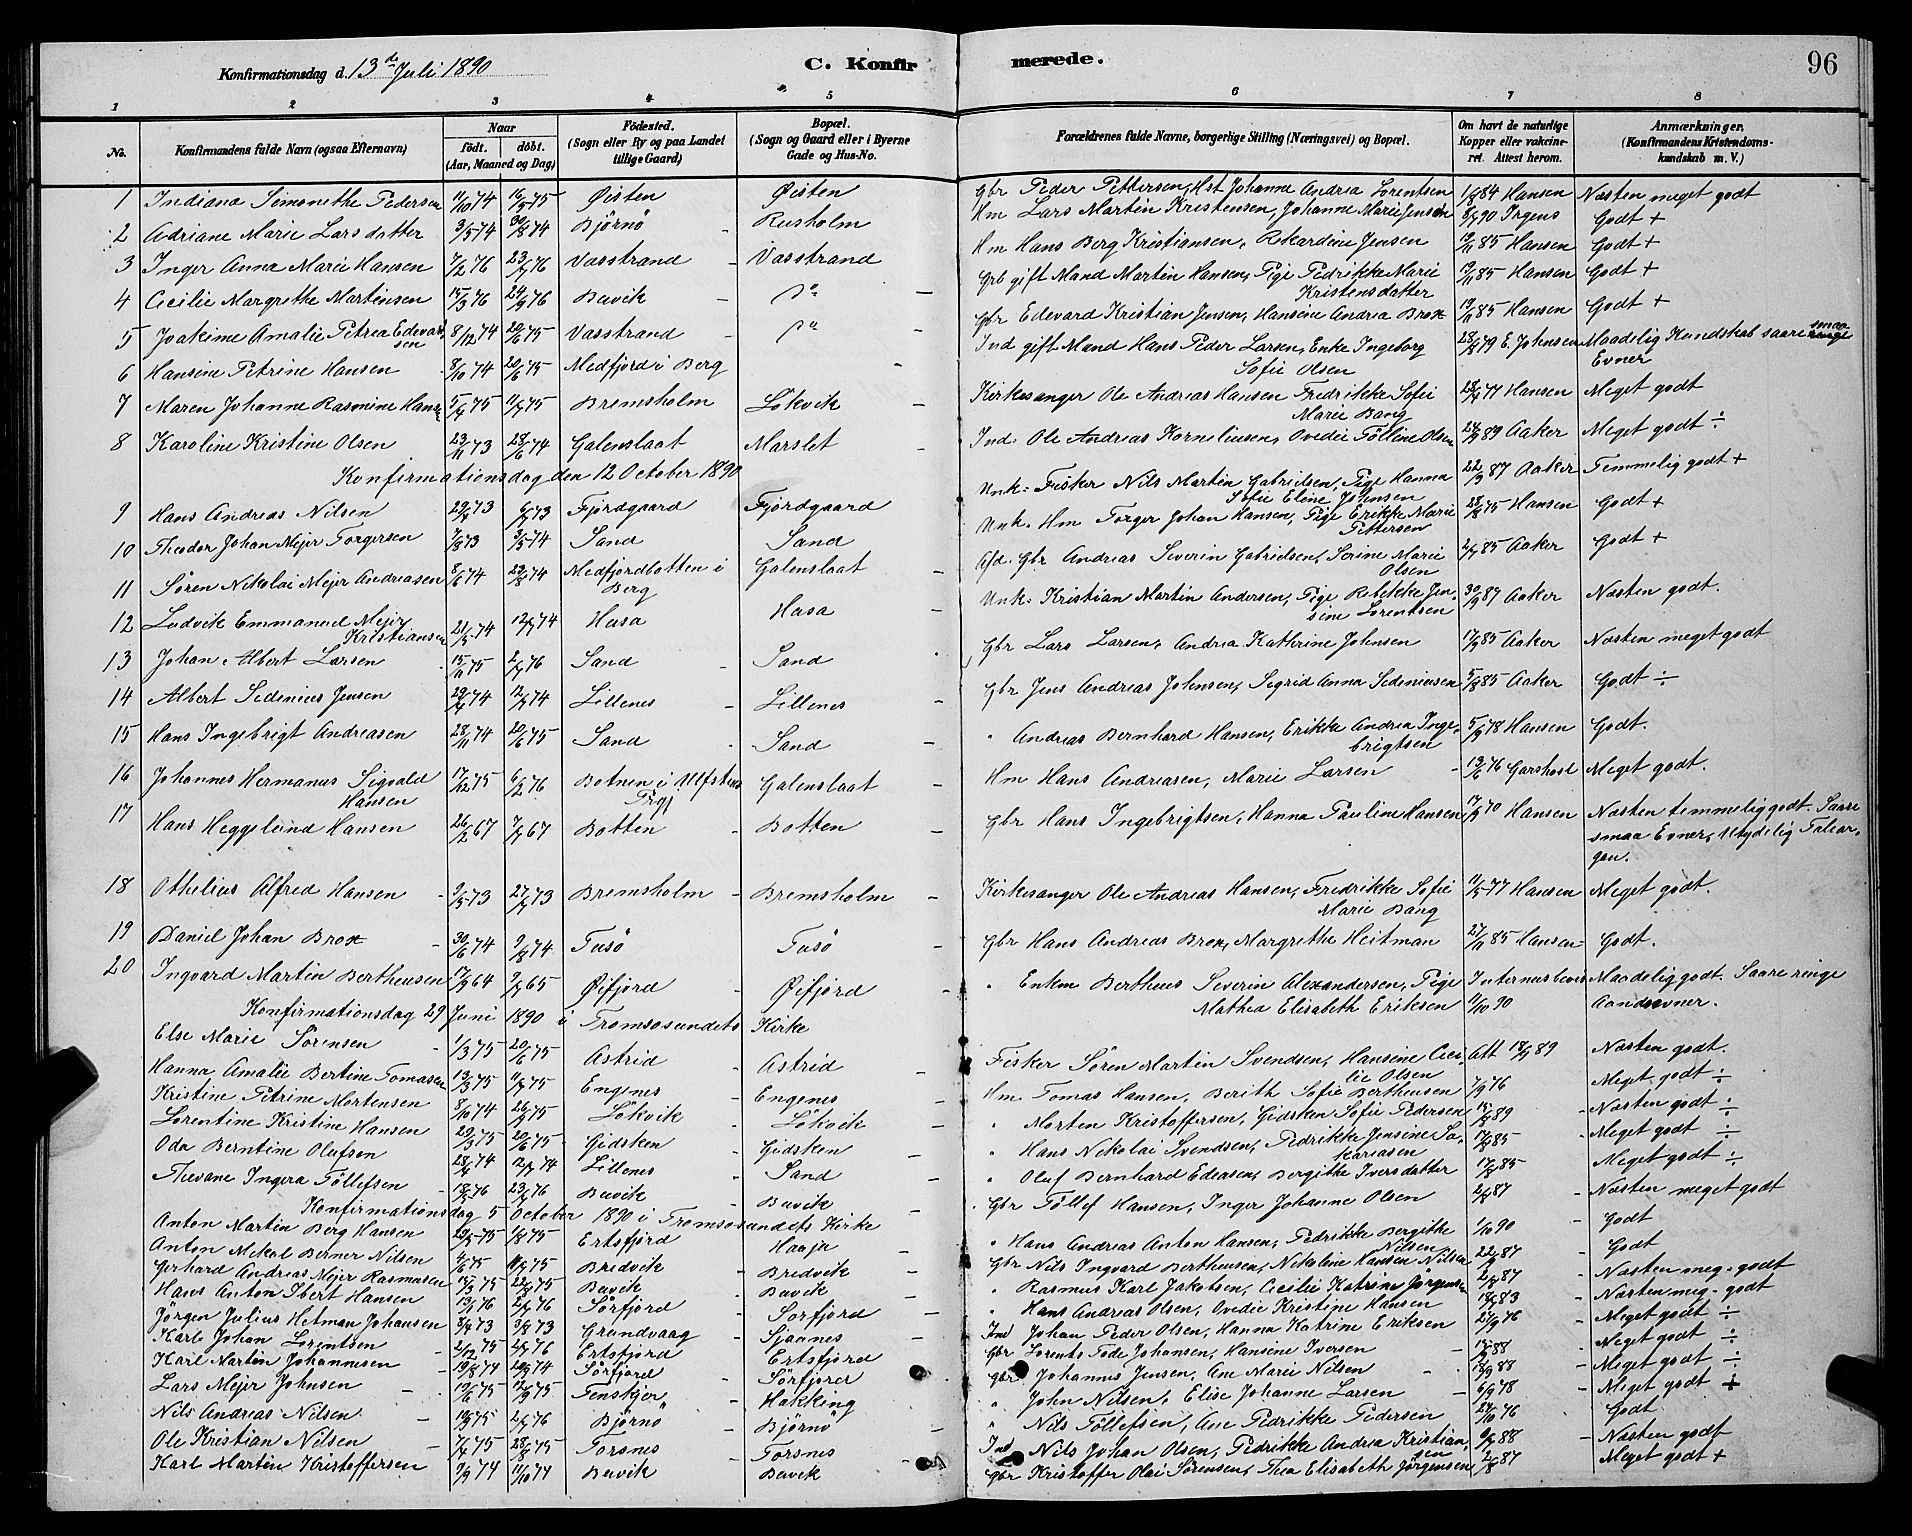 Konfirmationsdag d. 13de Juli 1890 C. Konfirmerede. 96
1 2 3 4 5 6 7 8
No. Konfirmandens fulde Navn (ogsaa Efternavn) Naar födt. döbt. (Aar, Maaned og Dag) Födested. (Sogn eller By og paa Landet tillige Gaard) Bopæl. (Sogn og Gaard eller i Byerne Gade og Hus-No. Forældrenes fulde Navne, borgerlige Stilling (Næringsvei) og Bopæl. Om havt de naturlige Kopper eller vakcineret. Attest herom. Anmærkninger. (Konfirmandens Kristendomskundskab m. V.)
1 Indiana Simonethe Pedersen 11/10 74 16/5 75 Øisten Øisten Gbr Peder Pettersen, Hst Johanna Andrea Lorentsen 1/8 84 Hansen Næsten meget godt
2 Adriane Marie Larsdatter 3/5 74 30/8 74 Bjørnö Rusholm Hm Lars Martin Kristensen, Johanne Marie Jensen 8/7 90 Irgens Godt +
3 Inger Anna Marie Hansen 7/2 76 23/7 76 Vasstrand Vasstrand Hm Hans Berg Kristiansen, Rekardine Jensen 19/11 85 Hansen Godt +
4 Cecilie Margrethe Martinsen 15/3 76 24/9 76 Buvik Do Grb gift Mand Martin Hansen, Pige Pedrikke Marie Kristensdatter 19/11 85 Hansen Godt +
5 Joakime Amalie Petrea Edevardsen 8/12 74 20/6 75 Vasstrand Do Gbr Edevard Kristian Jensen, Hansine Andrea Brox 19/11 85 Hansen Godt +
6 Hansine Petrine Hansen 8/10 74 20/6 75 Medfjord i Berg Ind gift Mand Hans Peder Larsen, Enke Ingeborg Sofie Olsen 79 E. Johnsen Maadelig Kundskab saare smaa Evner
7 Maren Johanne Rasmine Hansen 75 75 Bremsholm Lökvik Kirkesanger Ole Andreas Hansen Fredrikke Sofie Marie Bang 77 Hansen Meget godt
8 Karoline Kristine Olsen 23/11 73 28/6 74 Galenslaat Marslet Ind. Ole Andreas Korneliusen, Ovedie Tölline Olsen 89 Aaker Meget godt ÷
Konfirmationsdag den 12 October 1890
9 Hans Andreas Nilsen 73 73 Fjordgaard Fjordgaard Unk: Fisker Nils Martin Gabrielsen, Pige Hanna Sofie Eline Johnsen 22/9 87 Aaker Temmelig godt +
10 Theodor Johan Mejer Torgersen 7/8 73 3/5 74 Sand Sand Unk. Hm Torger Johan Hansen, Pige Erikke Marie Pettersen 28/8 75 Hansen Godt +
11 Sören Nikolai Mejer Andreasen 8/6 74 23/8 74 Medfjordbotten i Berg Galenslaat Afd. Gbr Andreas Severin Gabrielsen, Sorine Marie Olsen 85 Aaker Godt +
12 Ludvik Emmanuel Mejer Kristiansen 21/5 74 12/7 74 Husa Husa Unk. Kristian Martin Andersen, Pige Rebekke Jensine Lorentsen 30/9 87 Aaker Næsten godt.
13 Johan Albert Larsen 15/11 75 2/7 76 Sand Sand Gbr Lars Larsen, Andrea Katherine Johnsen 17/9 85 Aaker Næsten meget godt
14 Albert Sedenius Jensen 74 12/7 74 Lillenes Lillenes Gbr Jens Andreas Johnsen, Sigrid Anna Sedeniusen 5/8 85 Aaker Godt ÷
15 Hans Ingebrigt Andreasen 28/11 74 20/6 75 Sand Sand " Andreas Bernhard Hansen, Erikke Andrea Ingebrigtsen 5/9 78 Hansen Godt.
16 Johannes Hermanus Sigvald Hansen 17/12 75 6/2 76 Botnen i Ulfstens Prgj Galenslaat Hm Hans Andreasen, Marie Larsen 13/6 76 Næsten godt.
17 Hans Heggelund Hansen 26/2 67 7/7 67 Botten Botten Gbr Hans Ingebrigtsen, Hanna Pauline Hansen 17/9 70 Hansen Næsten temmelig godt. Saare smaa Evner, Utydelig Taleorgan.
18 Othelius Alfred Hansen 9/5 73 27/7 73 Bremsholm Bremsholm Kirkesanger Ole Andreas Hansen, Fredrikke Sofie Marie Bang 11/5 77 Hansen Meget godt.
19 Daniel Johan Brox 30/6 74 9/8 74 Tusö Tusö Gbr Hans Andreas Brox, Margrethe Heitman 27/11 85 Hansen Godt.
20 Ingvard Martin Bertheusen 17/9 64 9/7 65 Øifjord Øifjord " Enkm Bertheus Severin Alexandersen, Pige Mathea Elisabeth Eriksen 11/10 90 Maadelig godt. Saare ringe Aandsevner.
Konfirmationsdag 29 Juni 1890 i Tromsøsundets Kirke
Else Marie Sörensen 1/3 75 20/6 75 Astrid Astrid Fisker Sören Martin Svendsen, Hansine Cecilie Olsen Att 18/9 89 Næsten godt.
Hanna Amalie Bertine Tomasen 13/3 75 75 Engenes Engenes Hm Tomas Hansen, Berith Sofie Bertheusen 7/9 76 Meget godt ÷
Kristine Petrine Mortensen 8/10 74 75 Lökvik Lökvik " Morten Kristoffersen, Gidsken Sofie Pedersen 89 Næsten godt ÷
Lorentine Kristine Hansen 29/3 75 20/6 75 Gidsken Gidsken " Hans Nikolai Svendsen, Pedrikke Jensine Sakariasen 85 Meget godt ÷
Oda Berntine Olufsen 74 12/7 74 Lillenes Sand " Oluf Bernhard Edeasen, Bergitte Iversdatter 85 Meget godt ÷
Thevane Ingera Töllefsen 76 23/7 76 Buvik Buvik Gbr Töllef Hansen, Inger Johanne Olsen 87 Næsten meget godt
Konfirmationsdag 5 October 1890 i Tromsøsundets Kirke
Anton Martin Berg Hansen 29/5 75 1/8 75 Ertsfjord Haaja " Hans Andreas Anton Hansen, Pedrikke Bergithe Nilsen 1/10 90 Godt
Anton Mekal Berner Nilsen 4/6 75 75 Bredvik Bredvik Gbr Nils Ingvard Bertheusen, Nikoline Hansen Nilsen 22/9 87 Godt
Gerhard Andreas Mejer Rasmusen 15/3 75 22/8 75 Buvik Buvik " Rasmus Karl Jakobsen, Cecilie Katrine Jørgensen 87 Næsten meg. godt
Hans Anton Ibert Hansen 76 2/7 76 Sörfjord Sorfjord " Hans Andreas Olsen, Ovedie Kristine Hansen 83 Næsten meg. godt
Jörgen Julius Hetman Johansen 73 3/8 73 Grundvaag Sjaanes Ind Johan Peder Olsen, Hanna Katrine Eriksen 76 Meget godt ÷
Karl Johan Lorentsen 2/12 75 2/7 76 Ertsfjord Ertsfjord Gbr Lorents Tode Johansen, Hansine Iversen 88 Meget godt ÷
Karl Martin Johannesen 19/8 74 74 Sörfjord Sörfjord Gbr Johannes Jensen, Ane Marie Nilsen 88 Meget godt ÷
Lars Mejer Johnsen 19/6 75 12/9 75 Tenskjer Hakking " John Nilsen, Elise Johanne Larsen 6/9 78 Meget godt ÷
Nils Andreas Nilsen 75 2/7 76 Björnö Björnö " Nils Töllefsen, Ane Pedrikke Pedersen 76 Godt.
Ole Kristian Nilsen 7/4 75 28/8 75 Torsnes Torsnes Ind Nils Johan Olsen, Pedrikke Andrea Kristiansen 88 Næsten godt
Karl Martin Kristoffersen 9/9 74 11/10 74 Buvik Buvik Gbr Kristoffer Olai Sörensen, Thea Elisabeth Jörgensen 2/8 87 Meget godt +